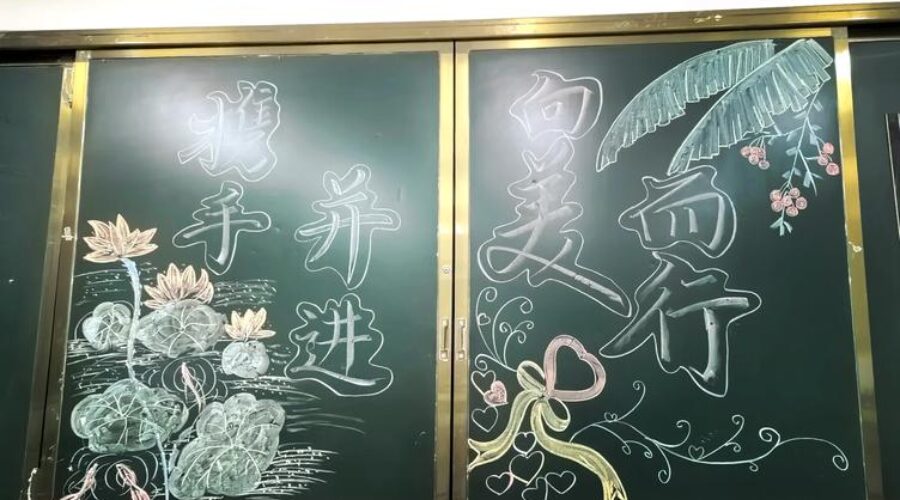 携手
并进
向美
而行